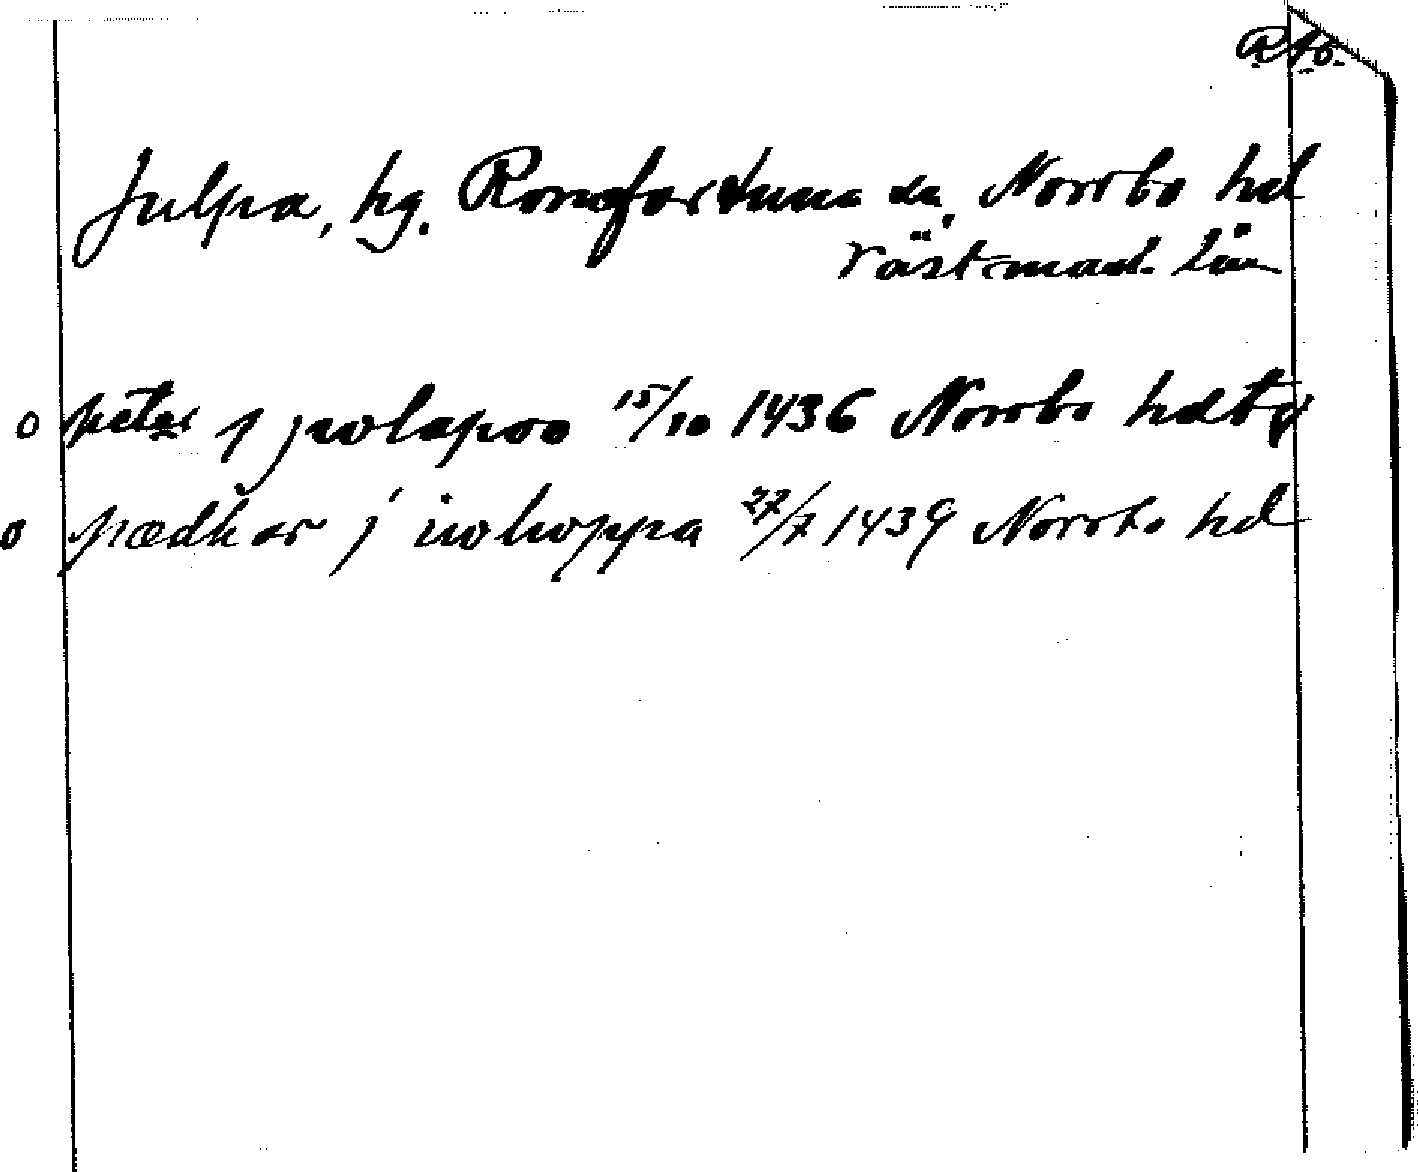 RAö.
Julpa, hg. Romfartuna sn, Norrbo hd
Västmanl. län
o peter j jwlapoo 15/10 1436 Norrbo hdtg
o pædher j iwlwppa 27/7 1439 Norrbo hd